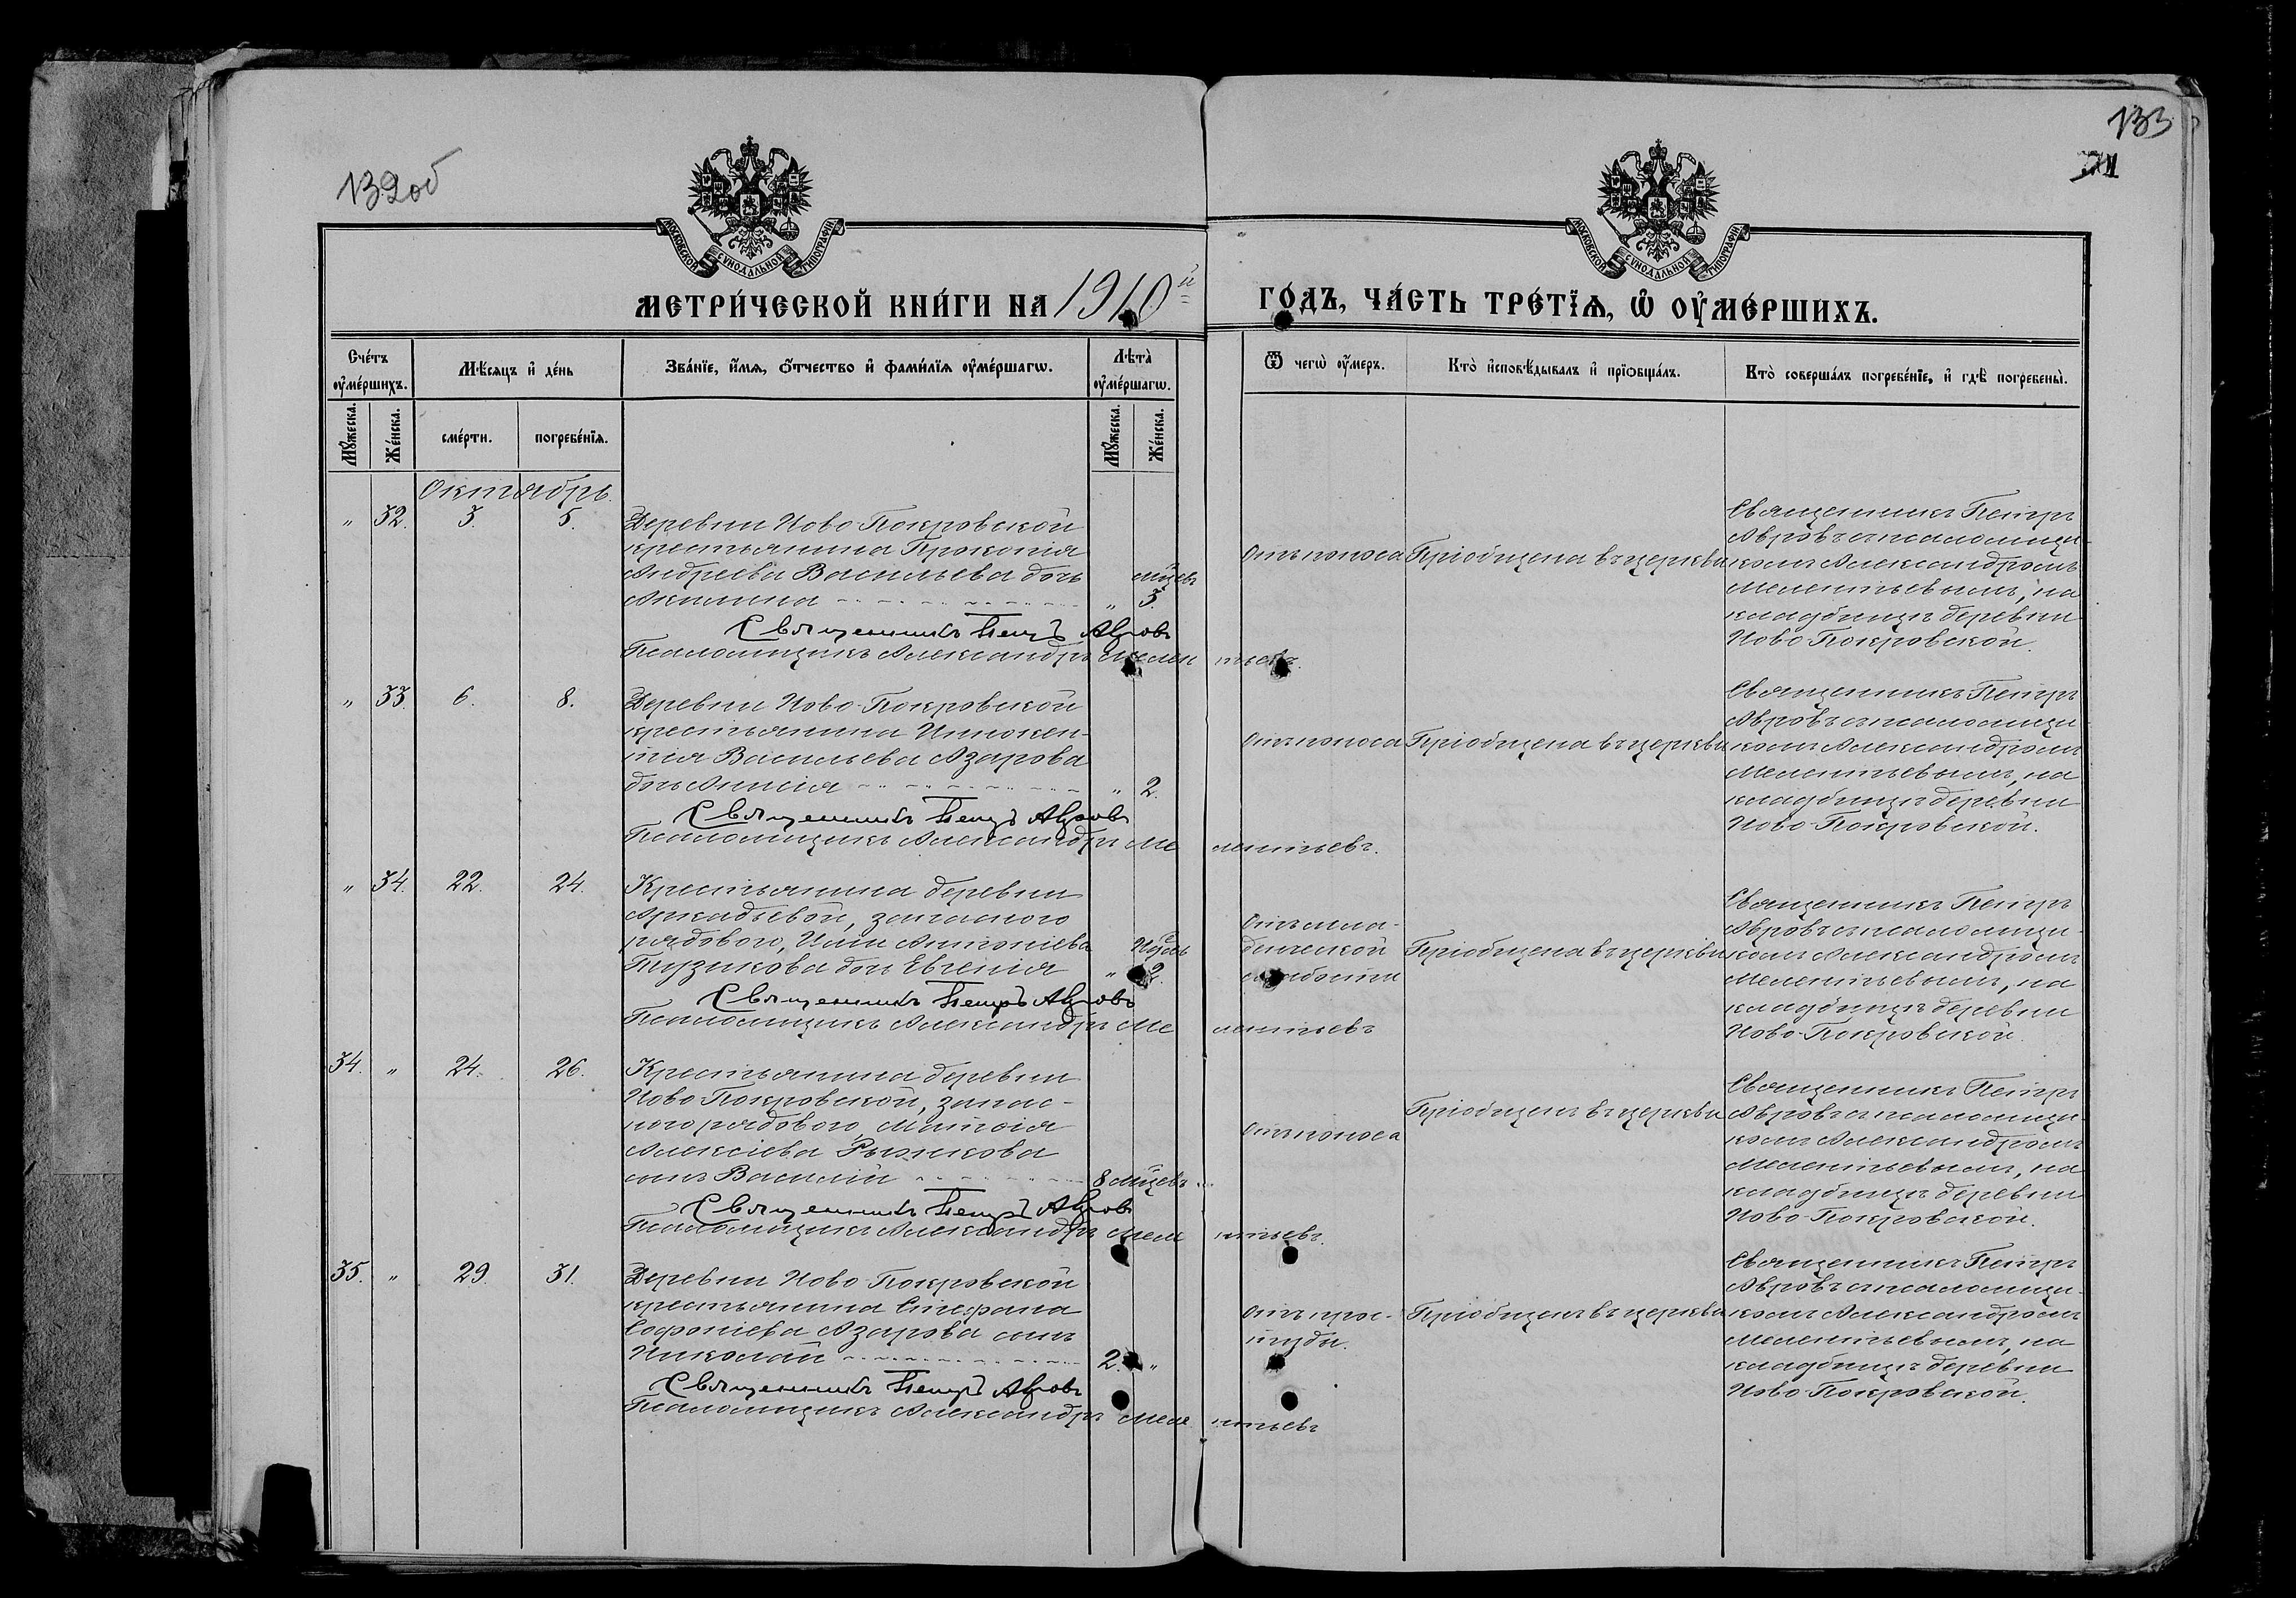 132об
133
МОСКОВСКОЙ СѴНОДАЛЬНОЙ ТИПОГРАФІИ
МОСКОВСКОЙ СѴНОДАЛЬНОЙ ТИПОГРАФІИ
МЕТРИ́ЧЕСКОЙ КНИ́ГИ НА 1910й
ГО́ДЪ, ЧА́СТЬ ТРЕ́ТЇѦ, Ѡ҆ ОУ҆МЕ́РШИХЪ.
Сче́тъ оу҆ме́ршихъ.
Мѣ́сѧцъ и҆ де́нь
Зва́нїе, и҆́мѧ, ѻ҆́тчество и҆ фами́лїѧ оу҆ме́ршагѡ.
Лѣта̀ оу҆ме́ршагѡ.
Ѿ чегѡ̀ оу҆́меръ.
Кто̀ и҆сповѣ́дывалъ и҆ прїѡбща́лъ.
Кто̀ соверша́лъ погребе́нїе, и҆ гдѣ̀ погребены̀.
Мꙋ́жеска.
Же́нска.
сме́рти.
погребе́нїѧ.
Мꙋ́жеска.
Же́нска.
Октябрь.
" 32. 3. 5.
Деревни Ново-Покровской
крестьянина Прокопія
Андреева Васильева дочь
Акилина " 3. мцевъ
Священникъ Петръ Авровъ
Псаломщикъ Александръ Мелентьевъ.
Отъ поноса
Пріобщена въ церкви
Священникъ Петръ
Авровъ съ псаломщи-
комъ Александромъ
Мелентьевымъ, на
кладбищѣ деревни
Ново-Покровской.
" 33. 6. 8.
Деревни Ново-Покровской
крестьянина Иннокен-
тія Васильева Азарова
дочь Анисія " 2.
Священникъ Петръ Авровъ
Псаломщикъ Александръ Мелентьевъ.
Отъ поноса
Пріобщена въ церкви
Священникъ Петръ
Авровъ съ псаломщи-
комъ Александромъ
Мелентьевымъ, на
кладбищѣ деревни
Ново-Покровской.
" 34. 22. 24.
Крестьянина деревни
Аркадьевой, запасного
рядового, Ильи Антоніева
Пузикова дочь Евгенія " 2. Нѣдѣль
Священникъ Петръ Авровъ
Псаломщикъ Александръ Мелентьевъ
Отъ мла-
денческой
слабости
Пріобщена въ церкви
Священникъ Петръ
Авровъ съ псаломщи-
комъ Александромъ
Мелентьевымъ, на
кладбищѣ деревни
Ново-Покровской.
34. " 24. 26.
Крестьянина деревни
Ново-Покровской, запас-
ного рядового, Матѳія
Алексіева Рыжкова
сынъ Василій 8 мцевъ
Священникъ Петръ Авровъ
Псаломщикъ Александръ Мелентьевъ.
Отъ поноса
Пріобщенъ въ церкви
Священникъ Петръ
Авровъ съ псаломщи-
комъ Александромъ
Мелентьевымъ, на
кладбищѣ деревни
Ново-Покровской.
35. " 29. 31.
Деревни Ново-Покровской
крестьянина Стефана
Софоніева Азарова сынъ
Николай 2. "
Священникъ Петръ Авровъ
Псаломщикъ Александръ Мелентьевъ
Отъ прос-
туды.
Пріобщенъ въ церкви
Священникъ Петръ
Авровъ съ псаломщи-
комъ Александромъ
Мелентьевымъ, на
кладбищѣ деревни
Ново-Покровской.